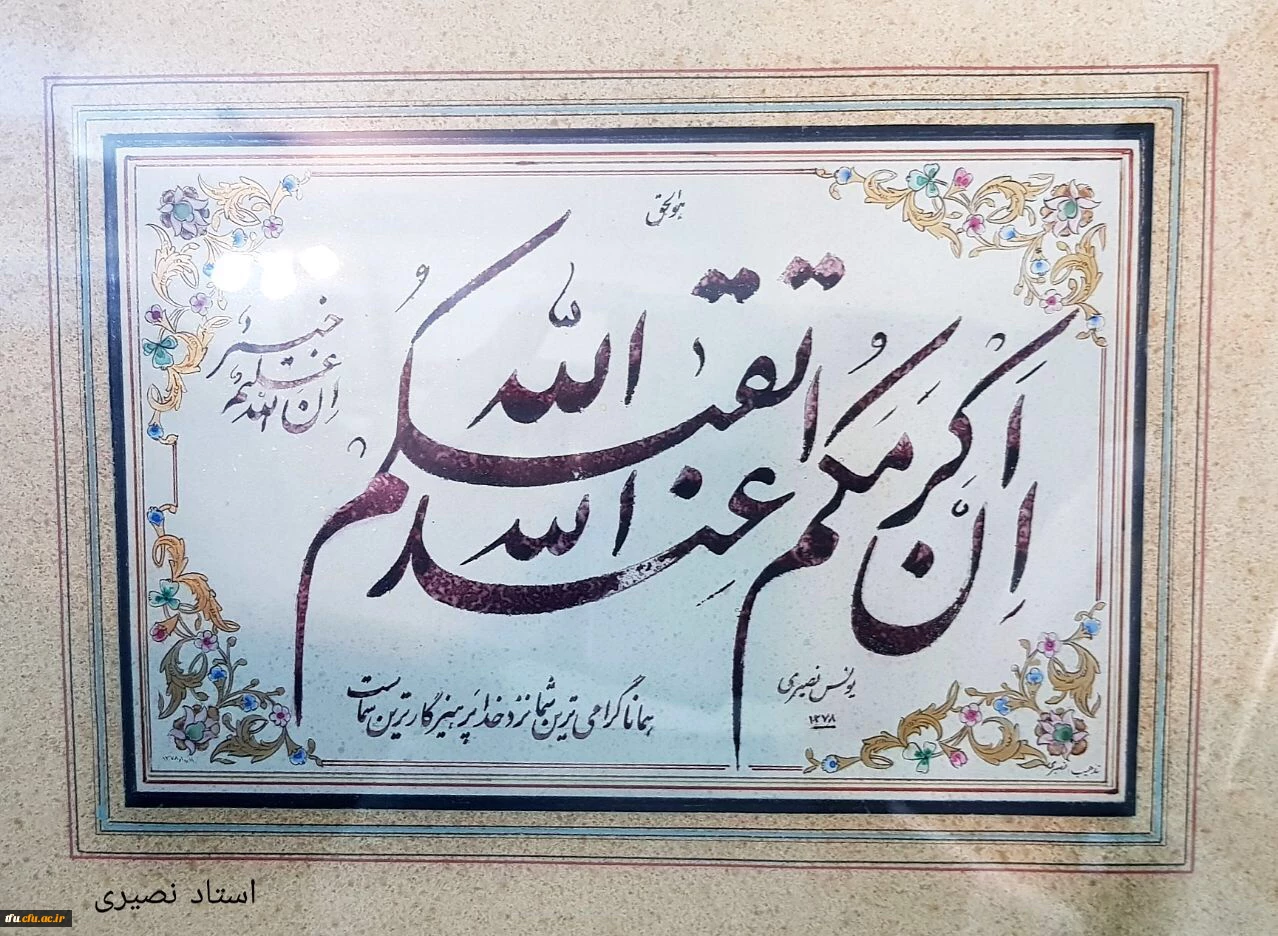 هوالحق
اِنَّ اَکرَمَکُم عِندَ الله اتقیکُم
الله
ان الله علیم خبیر
همانا گرامی ترین شما نزد خدا پرهیزگارترین شماست
یونس نصیری
۱۳۷۸
تذهیب نصیری
استاد نصیری
tfu.cfu.ac.ir